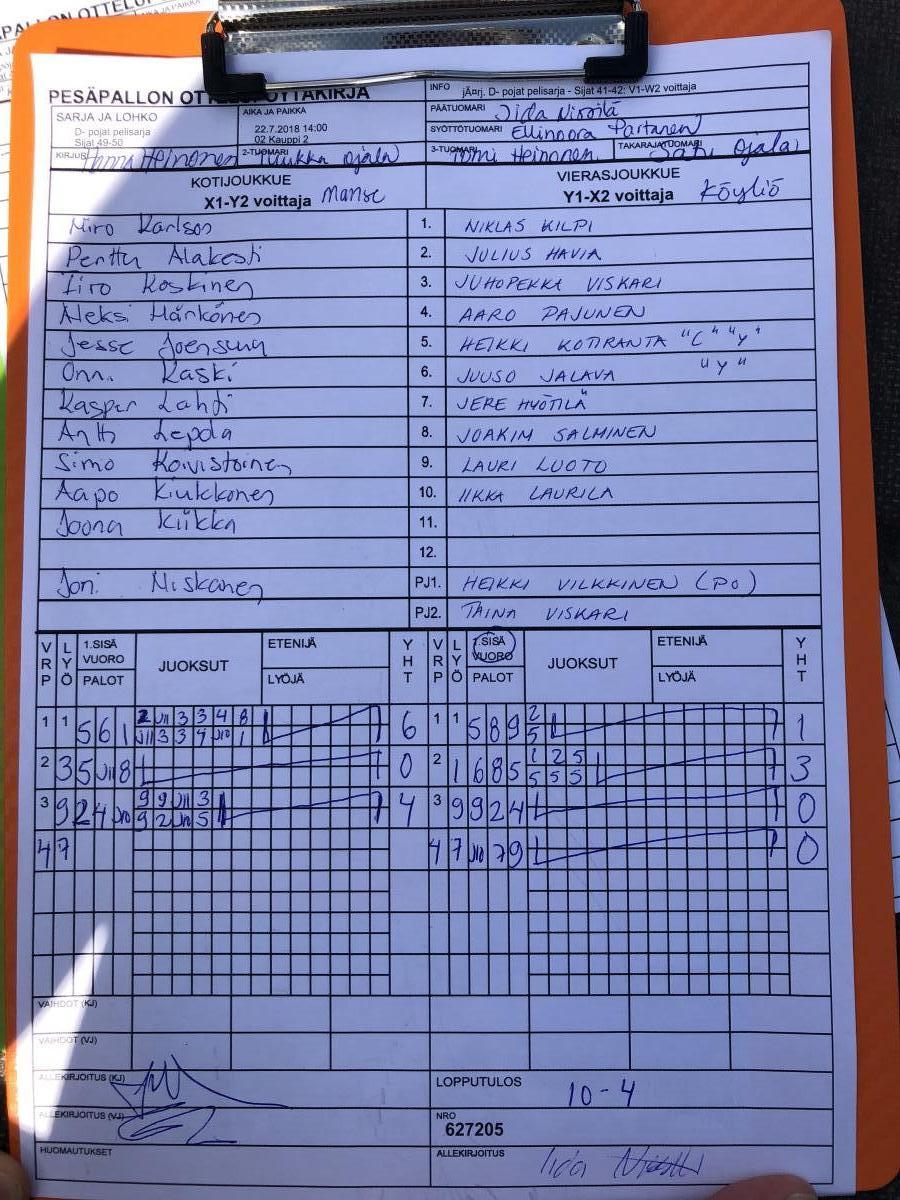 PESÄPALLON OTTELUPÖYTÄKIRJA
INFO jÄ¤rj. D- pojat pelisarja - Sijat 41-42: V1-W2 voittaja
SARJA JA LOHKO
D- pojat pelisarja
Sijat 49-50
AIKA JA PAIKKA
22.7.2018 14:00
02 Kauppi 2
PÄÄTUOMARI Iida
SYÖTTÖTUOMARI Ellinoora Partanen
KIRJURI Tomi Heinonen
2-TUOMARI Jukka Ojala
3-TUOMARI Tomi Heinonen
TAKARAJATUOMARI Satu Ojala
KOTIJOUKKUE
X1-Y2 voittaja Manse
VIERASJOUKKUE
Y1-X2 voittaja Köyliö
Miro Karlson 1. NIKLAS KILPI
Perttu Alakesti 2. JULIUS HAVIA
Iiro Koskinen 3. JUHOPEKKA VISKARI
Aleksi Härkönen 4. AARO PAJUNEN
Jesse Joensuu 5. HEIKKI KOTIRANTA "C" "Y"
Onni Kaski 6. JUUSO JALAVA "Y"
Kasper Lahti 7. JERE HYÖTILÄ
Antti Lepola 8. JOAKIM SALMINEN
Simo Koivistoinen 9. LAURI LUOTO
Aapo Kiukkonen 10. IIKKA LAURILA
Joona Kiikka 11.
12.
Joni Niskanen PJ1. HEIKKI VILKKINEN (PO)
PJ2. TAINA VISKARI
VRP LYÖ 1.SISÄ VUORO PALOT JUOKSUT ETENIJÄ LYÖJÄ YHT VRP LYÖ 1.SISÄ VUORO PALOT JUOKSUT ETENIJÄ LYÖJÄ YHT
1 1 5 6 1 2 J11 3 3 4 8 6 1 1 5 8 9 2 1
J11 3 3 4 J10 1 5
2 3 5 J11 8 0 2 1 6 8 5 1 2 5 3
5 5 5
3 9 2 4 J10 9 9 J11 3 4 3 9 9 2 4 0
9 2 J10 5
4 7 4 7 J10 7 9 0
VAIHDOT (KJ)
VAIHDOT (VJ)
ALLEKIRJOITUS (KJ)
LOPPUTULOS 10-4
ALLEKIRJOITUS (VJ)
NRO
627205
HUOMAUTUKSET
ALLEKIRJOITUS Iida